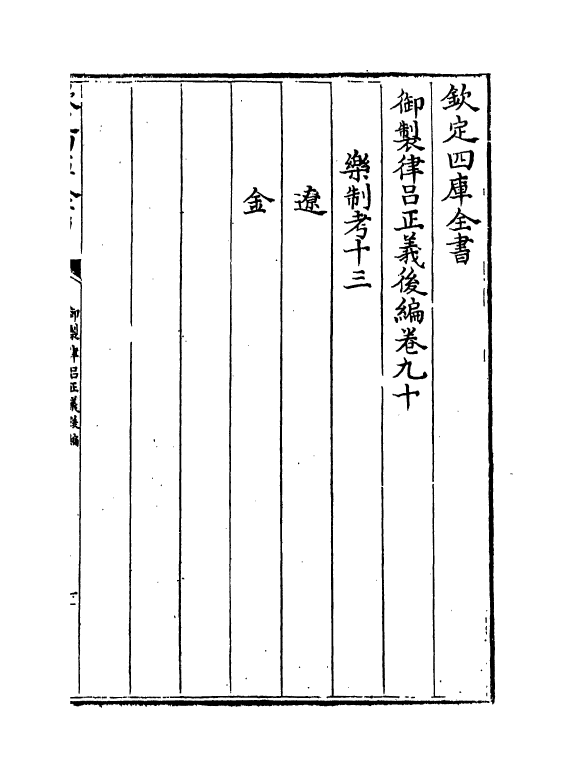 欽定四庫全書
御製律呂正義後編卷九十
樂制考十三
遼
金
御製律呂正義後編